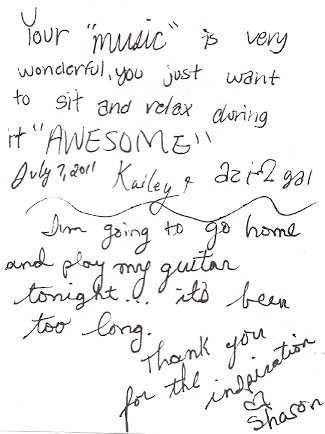 Your "music" is very
wonderful, you just want
to sit and relax during
it "AWESOME"
July 7, 2011 Kailey &
I'm going to go home
and play my guitar
tonight... it's been
too long.
Thank you
for the inspiration
Sharon